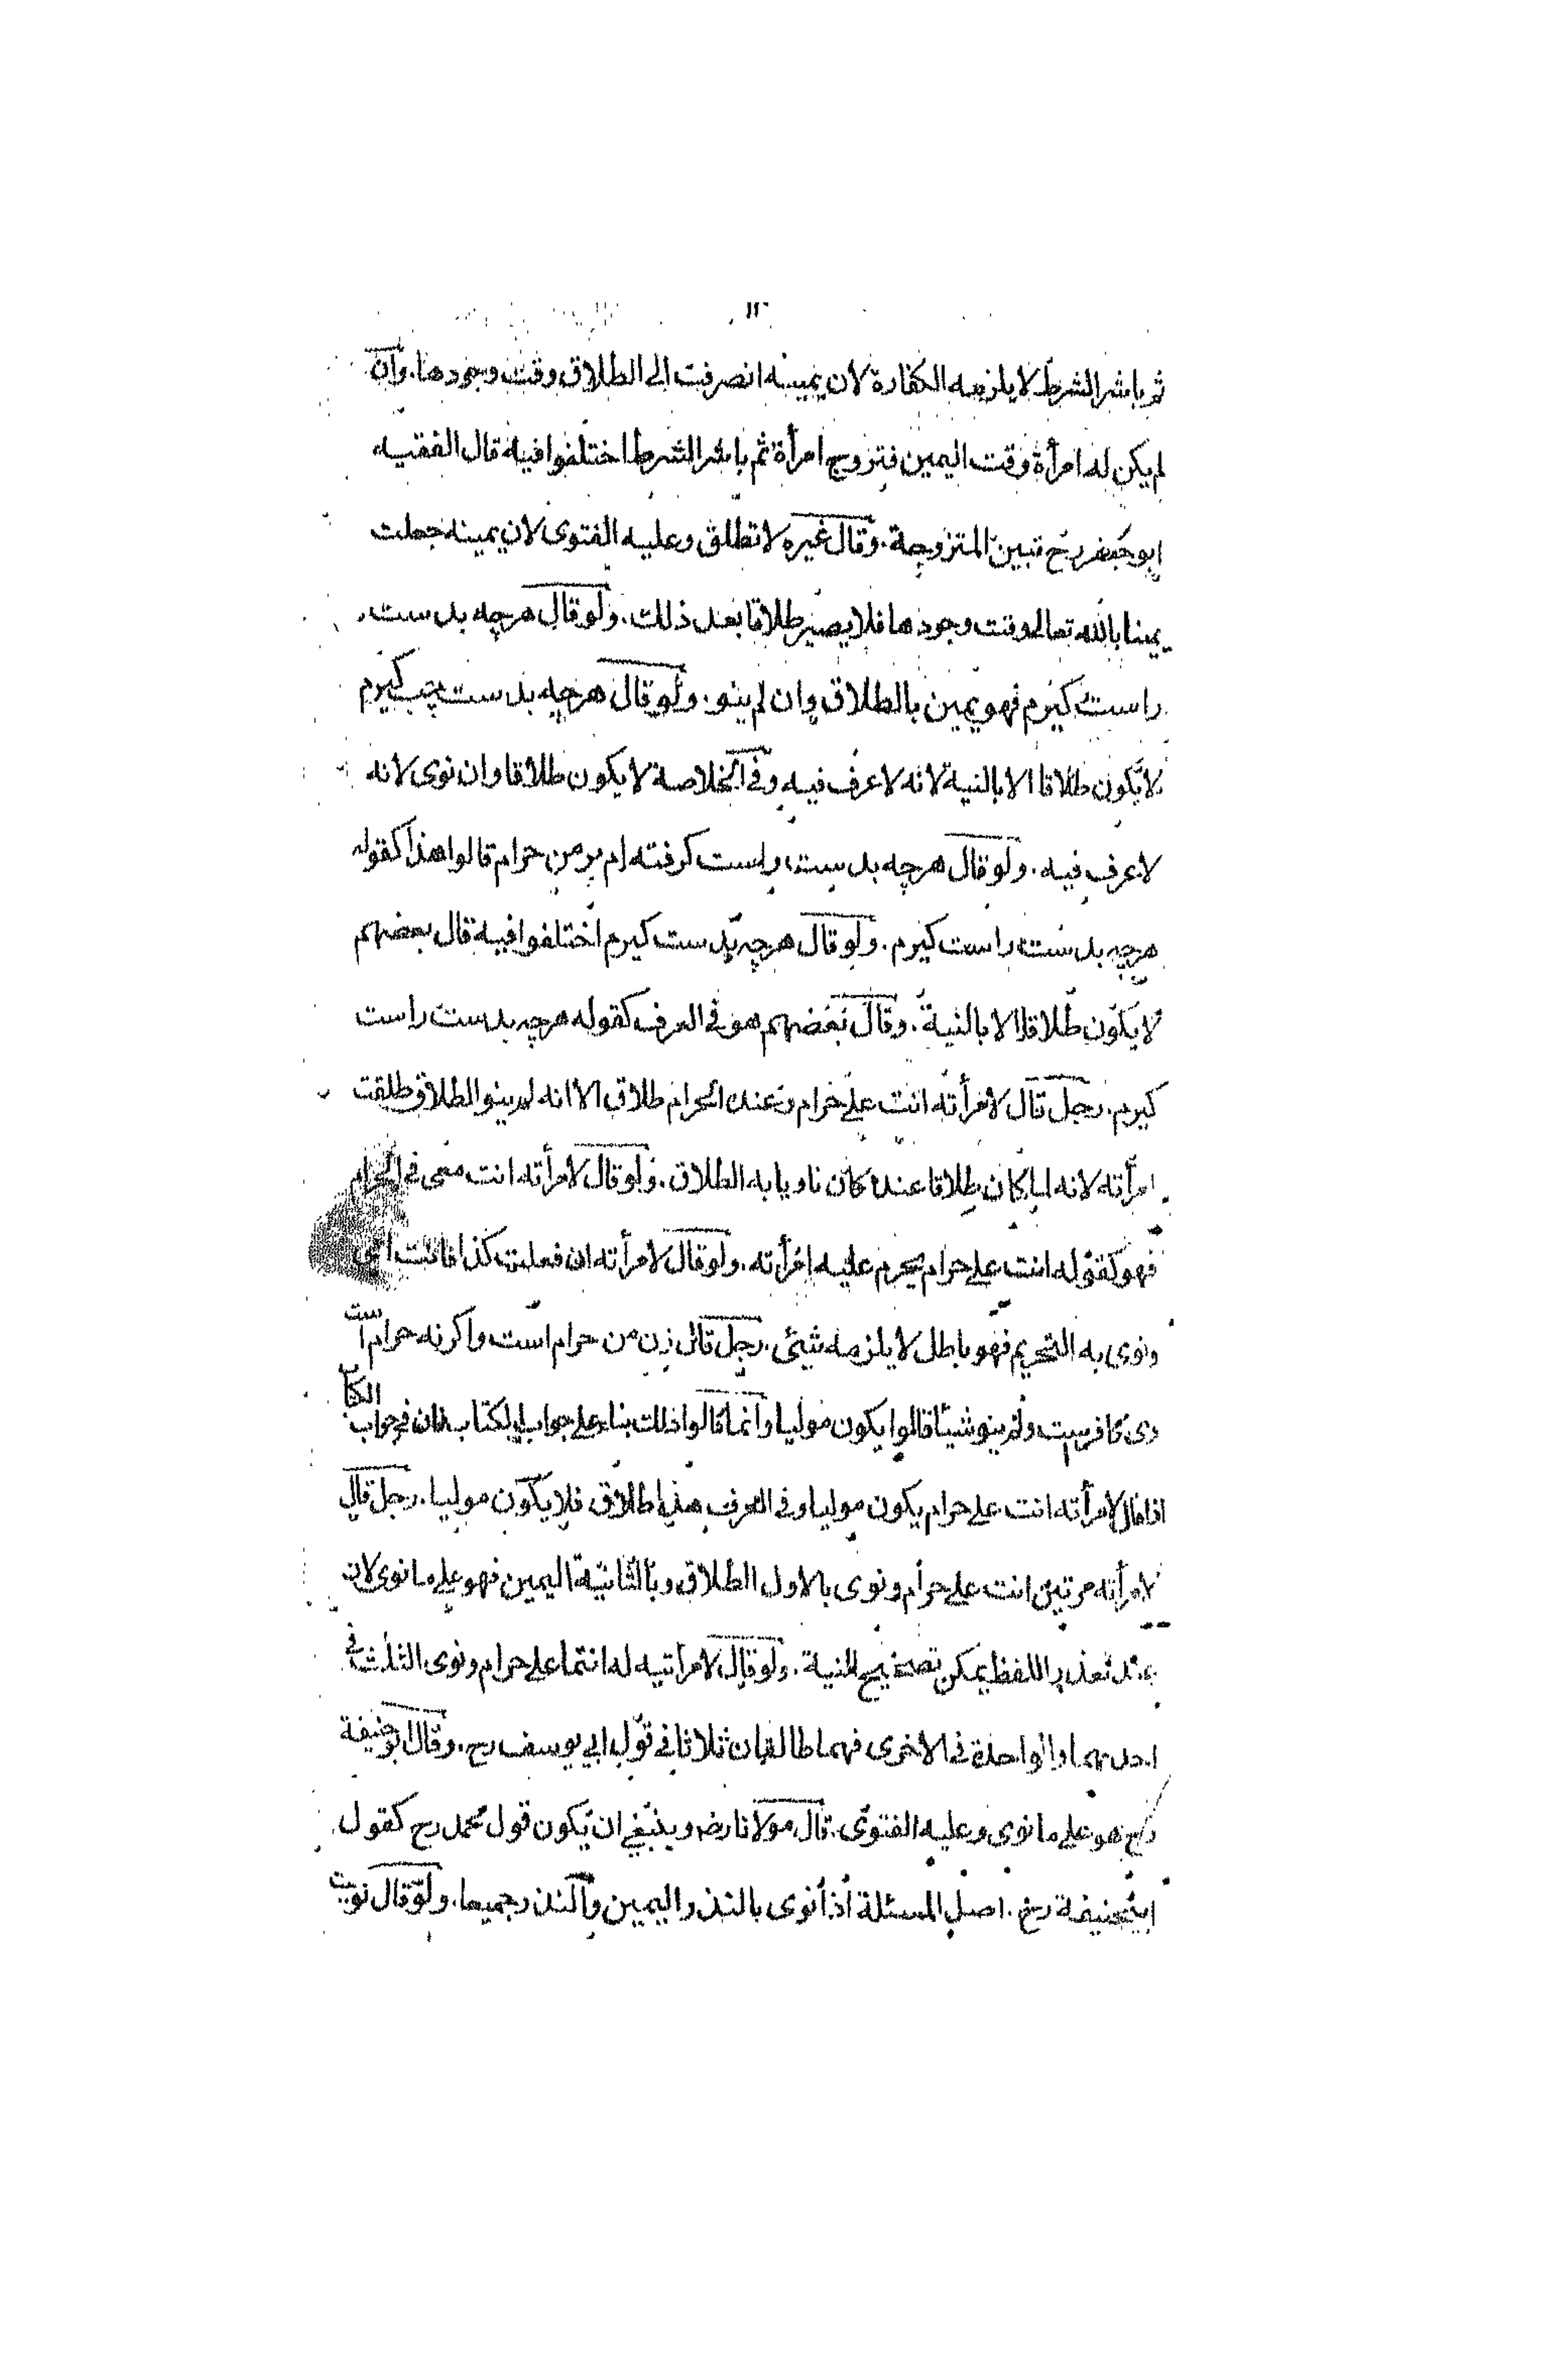 ثم باشر الشرط لا يلزمه الكفارة لان يمينه انصرفت الى الطلاق وقت وجودها. وان
لم يكن له امرأة وقت اليمين فتزوج امرأة ثم باشر الشرط اختلفوا فيه قال الفقيه
ابو جعفر رح تبين المتزوجة. وقال غيره لا تطلق وعليه الفتوى لان يمينه جعلت
يمينا بالله تعالى وقت وجودها فلا يصير طلاقا بعد ذلك. ولو قال هرچه بدست
راست كيرم فهو يمين بالطلاق وان لم ينو. ولو قال هرچه بدست چپ كيرم
لا يكون طلاقا الا بالنية لانه لا عرف فيه وفى الخلاصة لا يكون طلاقا وان نوى لانه
لا عرف فيه. ولو قال هرچه بدست راست كرفته ام بر من حرام قالوا هذا كقوله
هرچه بدست راست كيرم. ولو قال هرچه بدست كيرم اختلفوا فيه قال بعضهم
لا يكون طلاقا الا بالنية. وقال بعضهم هو فى العرف كقوله هرچه بدست راست
كيرم. رجل قال لامرأته انت على حرام وعنده الحرام طلاق الا انه لم ينو الطلاق طلقت
امرأته لانه لما كان طلاقا عنده كان ناويا به الطلاق. ولو قال لامرأته انت معى فى الحرام
فهو كقوله انت على حرام يحرم عليه امرأته. ولو قال لامرأته ان فعلت كذا فانت امى
ونوى به التحريم فهو باطل لا يلزمه شيئ. رجل قال زن من حرام است واكر نه حرام است
وى كافرست ولم ينو شيئا قالوا يكون موليا وانما قالوا ذلك بناء على جواب الكتاب فان فى جواب الكتاب
اذا قال لامرأته انت على حرام يكون موليا وفى العرف هذا طلاق فلا يكون موليا. رجل قال
لامرأته مرتين انت على حرام ونوى بالاول الطلاق وبالثانية اليمين فهو على ما نوى لان
تعذر اللفظ يمكن تصحيح النية. ولو قال لامرأتيه له انتما على حرام ونوى الثلث فى
احديهما والواحدة فى الاخرى فهما طالقان ثلاثا فى قول ابي يوسف رح. وقال ابو حنيفة
رح هو على ما نوى وعليه الفتوى. قال مولانا رضه وينبغى ان يكون قول محمد رح كقول
ابيحنيفة رح. اصل المسئلة اذا نوى بالنذر اليمين والنذر جميعا. ولو قال نويت